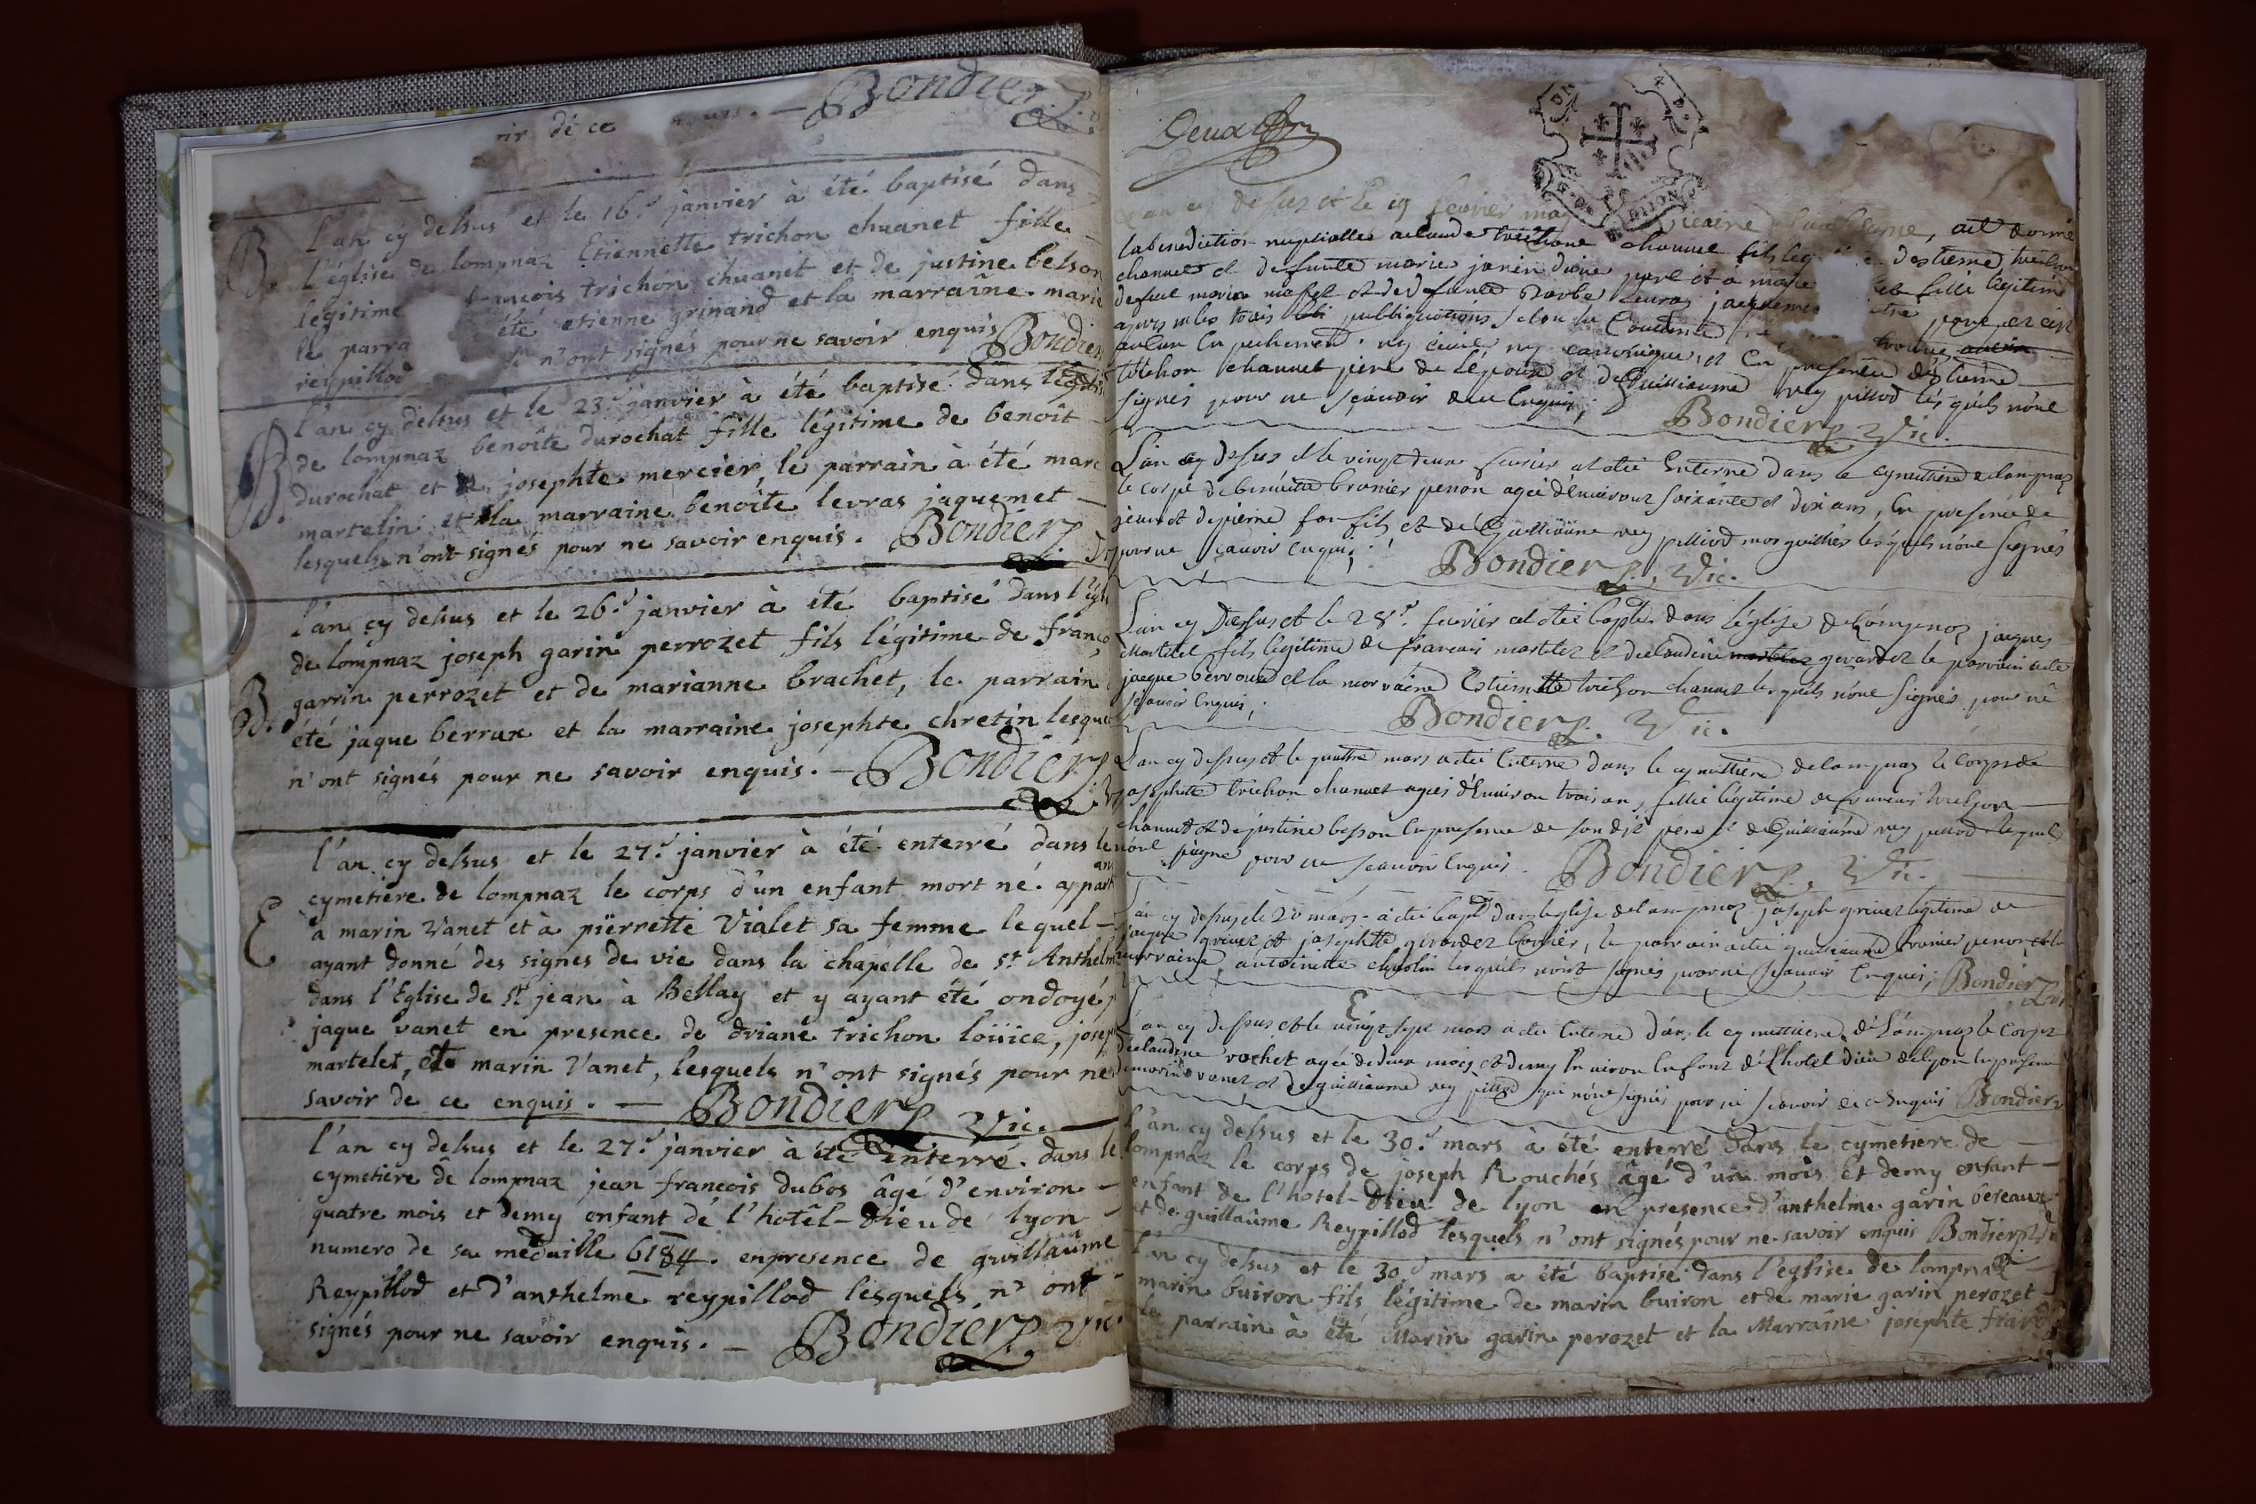 Bondier
nir de ce
B. l'an cy dessus et le 16.e janvier à été baptisé dans
l'église de lompnaz Etiennette trichon chuanet fille
légitime francois trichon chuanet et de justine besson
le parra été etienne grinand et la marraine marie
reypillod n'ont signés pour ne savoir enquis Bondier
B. l'an cy dessus et le 23.e janvier à été baptisé dans l'église
de lompnaz benoîte durochat fille légitime de benoît
durochat et josephte mercier, le parrain à été marc
martelin et la marraine benoîte levras jaquemet
lesquels n'ont signés pour ne savoir enquis. Bondier
B. l'an cy dessus et le 26.e janvier à été baptisé dans l'égli
de lompnaz joseph garin perrozet fils légitime de franço
garrin perrozet et de marianne brachet, le parrain
été jaque berrux et la marraine josephte chretin lesque
n'ont signés pour ne savoir enquis. Bondier
E l'an cy dessus et le 27.e janvier à été enterré dans le
cymetiere de lompnaz le corps d'un enfant mort né appart
à marin Vanet et à pierrette Vialet sa femme lequel
ayant donné des signes de vie dans la chapelle de st Anthelm
dans l'Eglise de St jean à Bellay et y ayant été ondoyé,
jaque vanet en presence de driane trichon loüice, josep
martelet, et marin Vanet, lesquels n'ont signés pour ne
savoir de ce enquis. Bondier Vic.
l'an cy dessus et le 27.e janvier à été enterré dans le
cymetiere de lompnaz jean francois dubos âgé d'environ
quatre mois et demy enfant de l'hotêl-Dieu de lyon
numero de sa medaille 6184. en presence de guillaûme
Reypillod et d'anthelme reypillod lesquels n'ont
signés pour ne savoir enquis. Bondier Vic.
Deux
l'an cy dessus et le 19 fevrier
la benediction nuptialle chanuet fils leg d'estienne
chanuet et defunte marie janin d'une part et à marie fille légitime
de feu marin et de defunte jaquemet d'autre part et
apres les trois publiquations selon la trouvé aucun
aucun empechement ny civil ny canonique, et en presence d'estienne
trichon chanuet pere de l'epoux et de Guilliaume rey pillod lesquels n'one
signés pour ne sçauoir de ce Enquis; Bondier Vic.
L'an cy dessus et le vingt deux fevrier at otée Enterré dans le cymettiere de lompnaz
le corps de benoitte bronier penon agée d'Enuiront soixante et dix ans, En presence de
jean et de pierre son fils et de Guilliaüme rey pilliod lesquels n'one signés
pour ne sçauoir enquis; Bondier Vic.
L'an cy Dessus et le 28.e fevriér at otée Bapté dans l'église de Lompnaz jacques
Martelet fils legitime de francois martelez et de claudine gerardez le parrain a éte
jaque berroud et la marraine Estiennette trichon chanuez lesquels n'one signés pour ne
sçauoir Enquis; Bondier Vic.
L'an cy dessus et le quattre mars a été Enterré dans le cymettiere de lompnaz le corps de
josephte trichon chanuet agée d'Enuiron trois ans, fillie légitime de francois trichon
chanuet et de justine besson En presence de son dit pere et de Guilliaüme rey pillod lesquels
n'one signé pour ne sçauoir Enquis. Bondier Vic.
L'an cy dessus le 20 mars a été bapté dans l'eglise de lompnaz joseph grinez légitime de
jaque grinez et josephte girardez le parrain a été guilliaume bronier penon et la
marraine, antoinette lesquels n'ont signés pour ne sçauoir Enquis; Bondier
E
L'an cy dessus et le vingt sept mars a été Enterré dans le cymettiere de Lompnaz le corps
de claudine rochet agée de deux mois et demy Enuiron Enfant de L'hotel dieu de lyon En presence
de marin vanez et de guilliaume rey pillod qui n'one signés pour ne sçauoir de ce Enquis Bondier
l'an cy dessus et le 30.e mars à été enterré dans le cymetiere de
lompnaz le corps de joseph Rouchés âgé d'un mois et demy enfant
enfant de l'hotel-Dieu de lyon en presence d'anthelme garin bereaux
et de guillaûme Reypillod lesquels n'ont signés pour ne savoir enquis Bondier
l'an cy dessus et le 30.e mars a été baptisé dans l'église de lompnaz
marin buiron fils légitime de marin buiron et de marie garin perozet
le parrain à été Marin garin perozet et la Marraine josephte